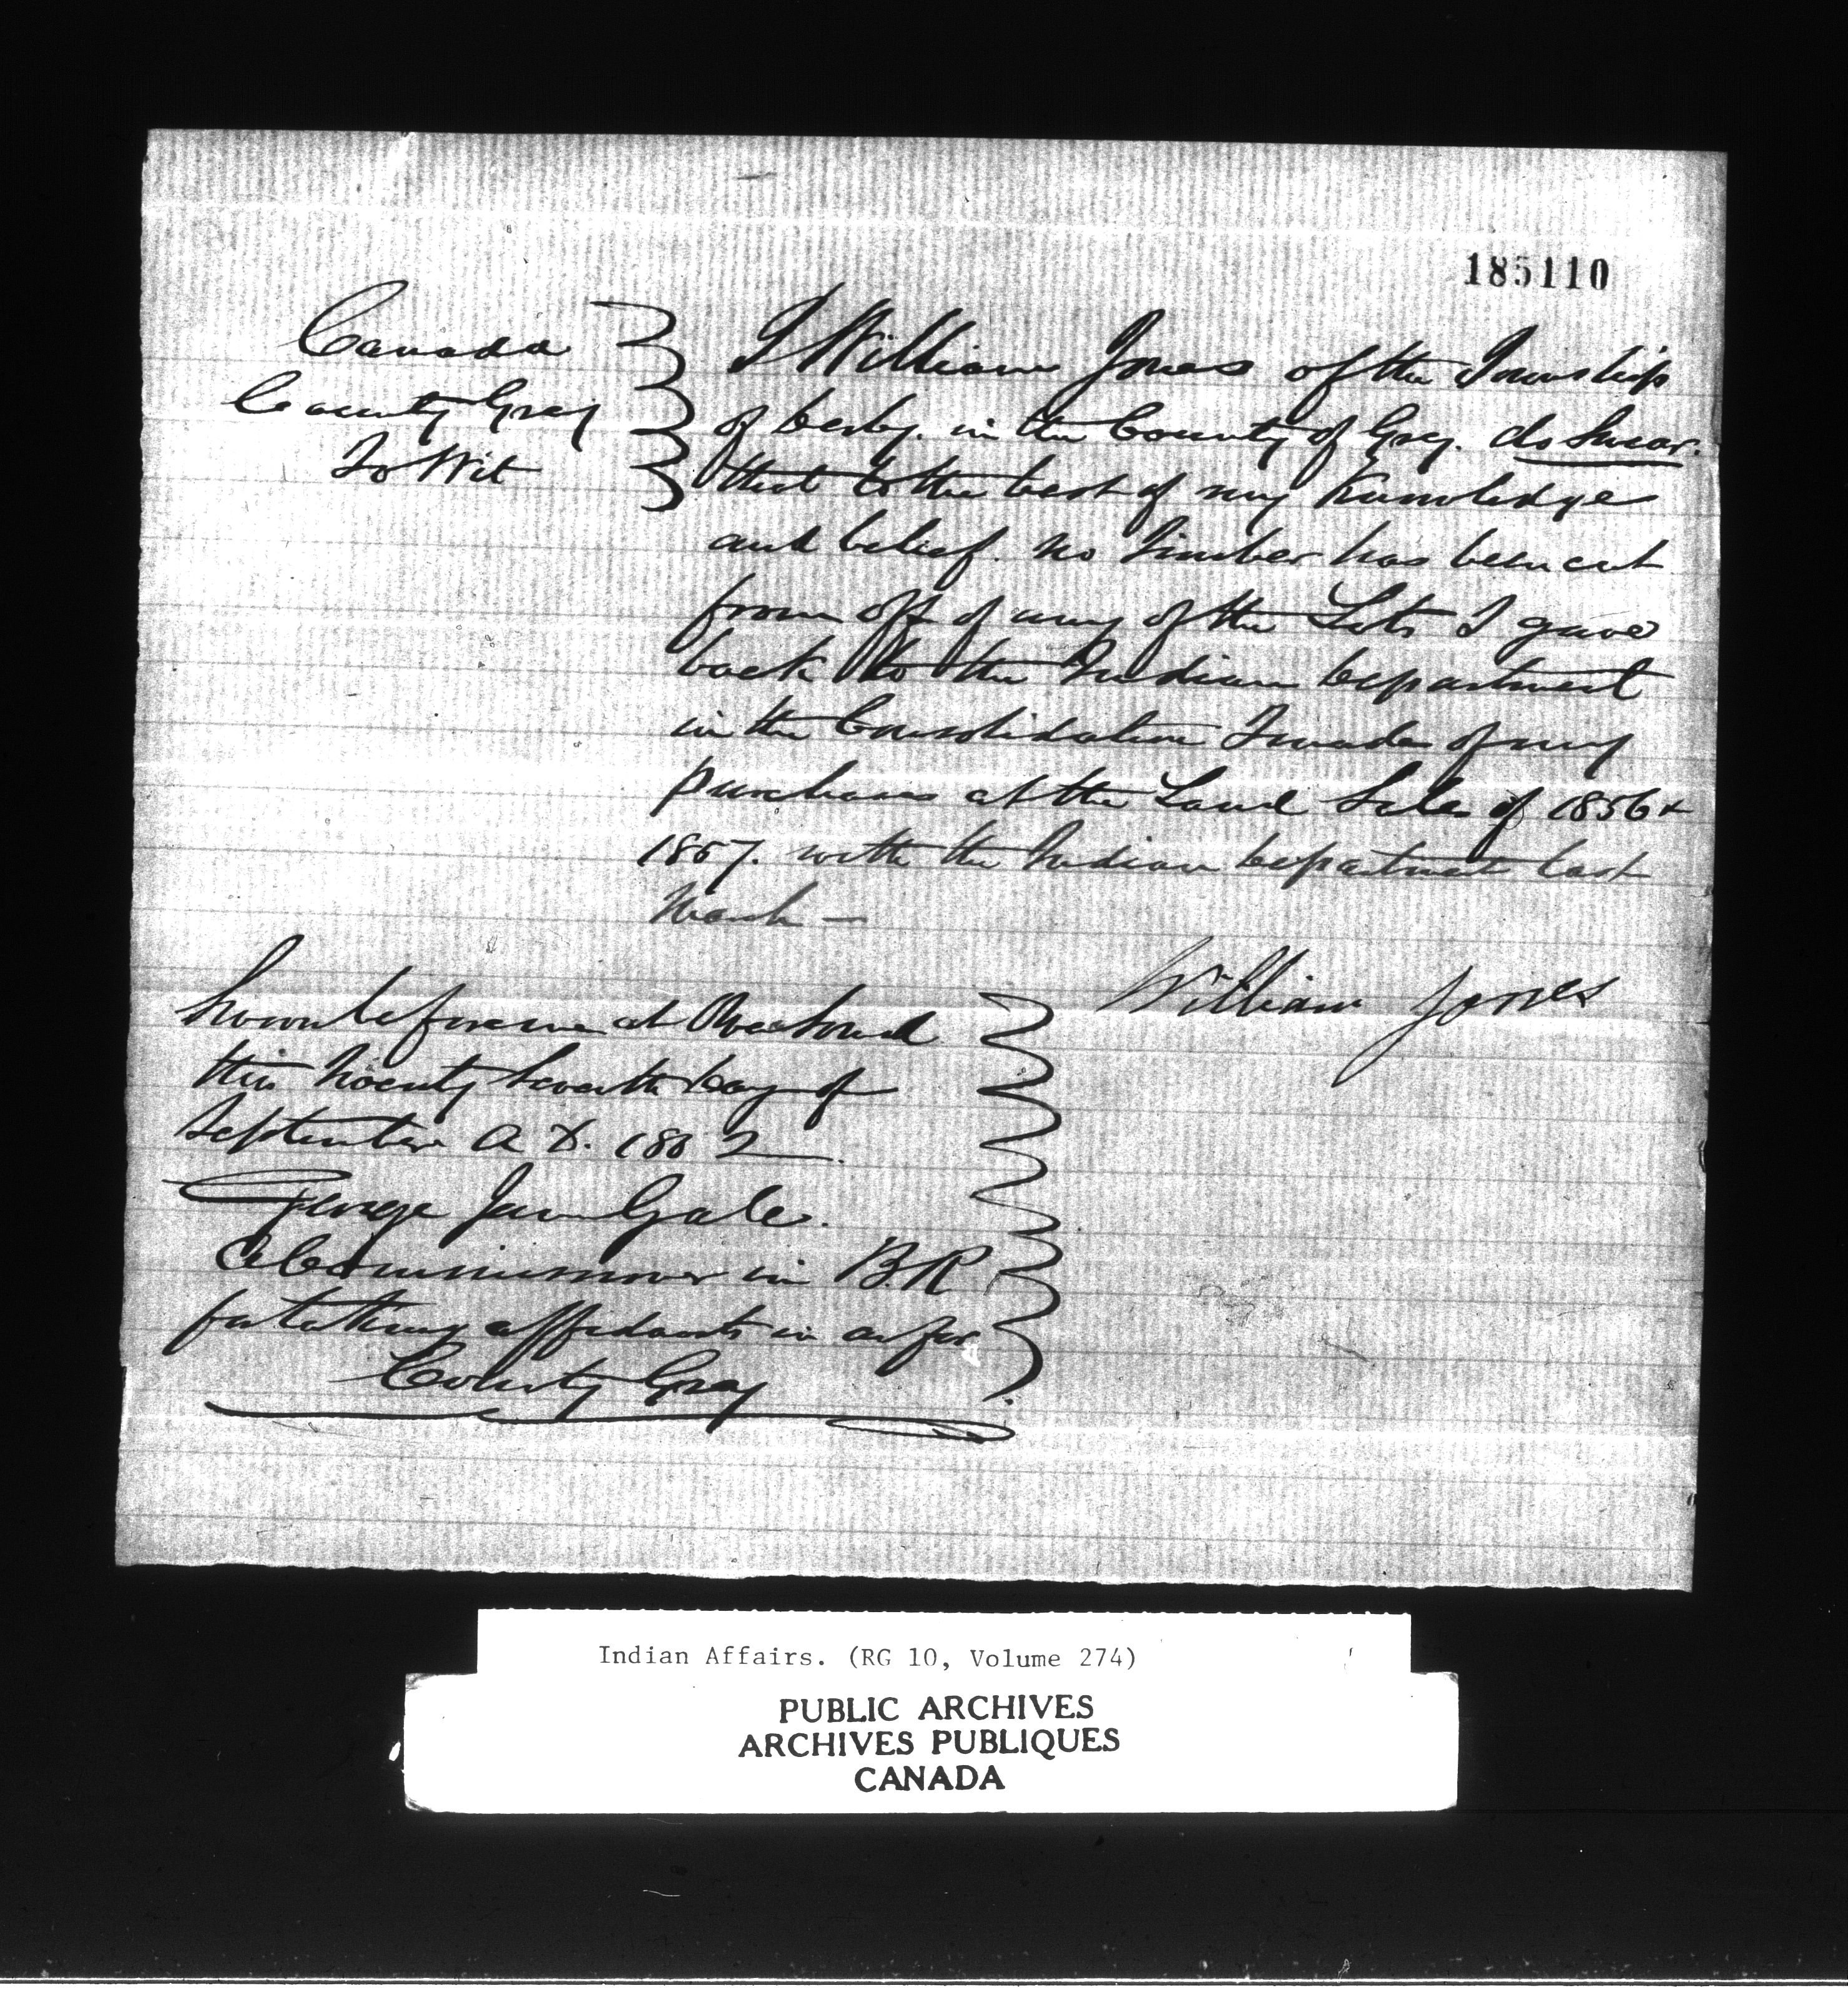 185110
Canada
County Grey
To Wit
I William Jones of the Township
of Derby. in the County of Grey. do Swear.
that to the best of my Knowledge
and belief. no Timber has been cut
from off of any of the Lots I gave
back to the Indian Department
in the Consolidation I made of my
purchases at the Land Sales of 1856 &
1857. with the Indian Department last
March —
William Jones
Sworn before me at Owen Sound
this Twenty Seventh day of
September A D. 1862
George Gale.
A Commissioner in B.R
for taking affidavits in &
County Grey
Indian Affairs. (RG 10, Volume 274)
PUBLIC ARCHIVES
ARCHIVES PUBLIQUES
CANADA